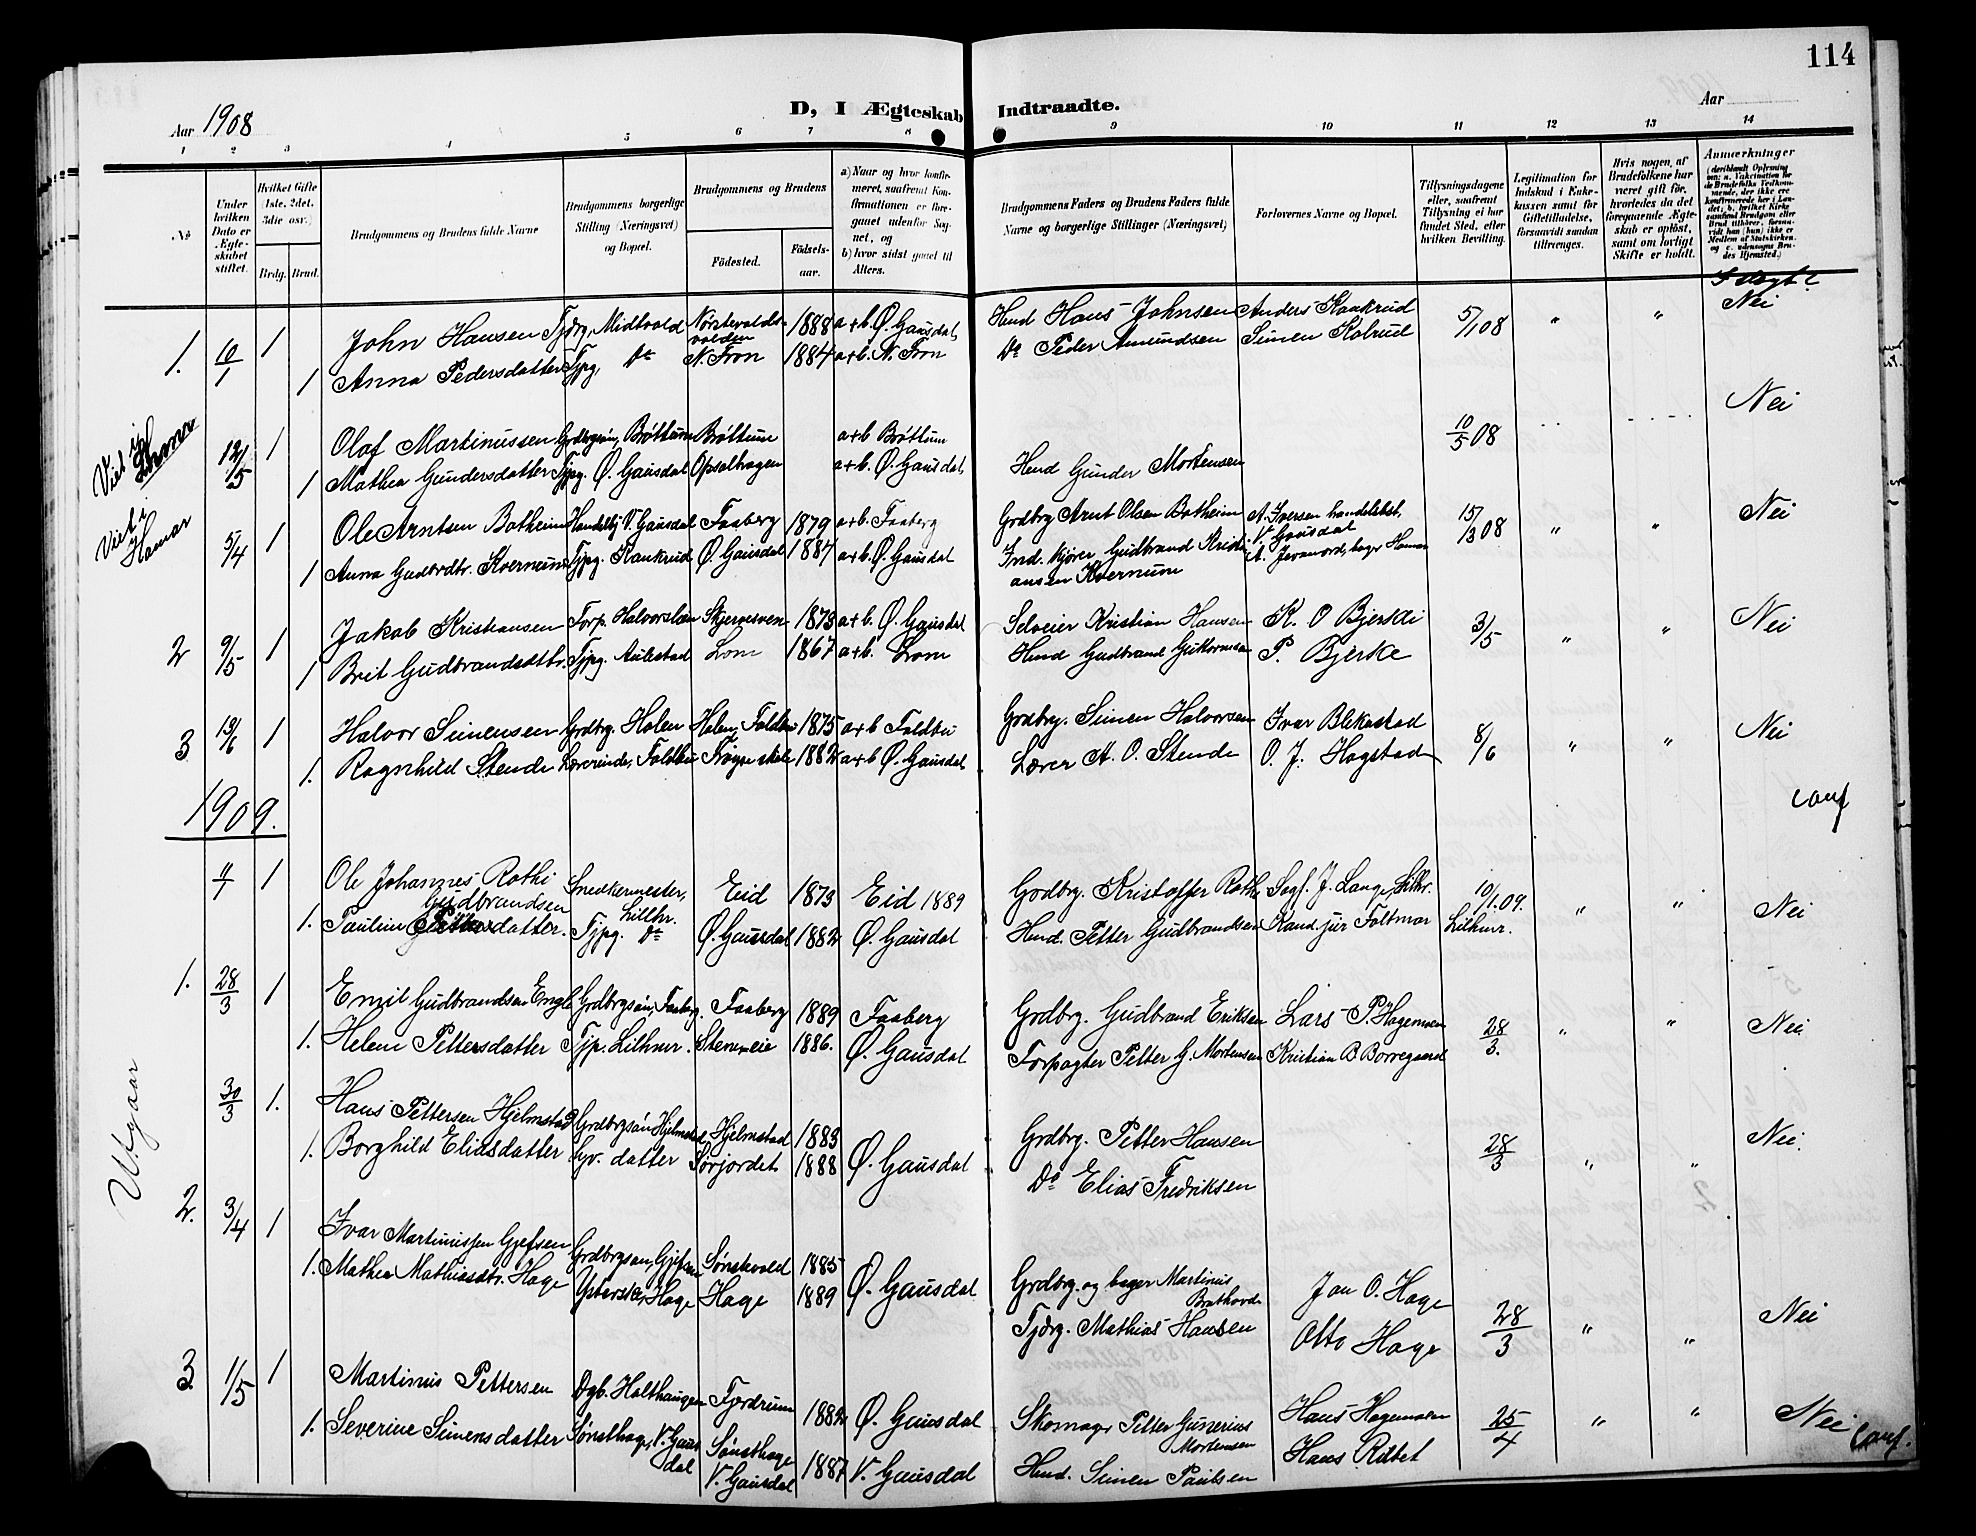 114
D, I Ægteskab Indtraadte.
Aar 1908
Aar
1 2 3 4 5 6 7 8 9 10 11 12 13 14
No
Under hvilken Dato er Ægteskabet stiftet.
Hvilket Gifte (1ste, 2det, 3die osv.)
Brdg. Brud.
Brudgommens og Brudens fulde Navne
Brudgommens borgerlige Stilling (Næringsvei) og Bopæl.
Brudgommens og Brudens
Fødested.
Fødselsaar.
a) Naar og hvor konfirmeret, saafremt Konfirmationen er foregaaet udenfor Sognet, og
b) hvor sidst gaaet til Alters.
Brudgommens Faders og Brudens Faders fulde Navne og borgerlige Stillinger (Næringsvei)
Forlovernes Navne og Bopæl.
Tillysningsdagene eller, saafremt Tillysning ei har fundet Sted, efter hvilken Bevilling.
Legitimation for Indskud i Enkekassen samt for Giftetilladelse, forsaavidt saadan tiltrænges.
Hvis nogen, af Brudefolkene har været gift før, hvorledes da det foregaaende Ægteskab er opløst, samt om lovligt Skifte er holdt.
Anmærkninger
1. 10/1 1 John Hansen Tjdrg. Midtvold Nørstevolds- 1888 a+b. Ø. Gausdal Hmd Hans Johnsen Anders Kankrud 5/1 08 " " Nei
volden
1 Anna Pedersdatter Tjpg. Do N. Fron 1884 a+b. N. Fron Do Peder Amundsen Simen Kolrud
Viet i
12/5 1 Olaf Martinussen Grdbrgsøn, Brøttum Brøttum a+b Brøttum 10/5 08 Nei
1 Mathea Gundersdatter Tjpg. Ø. Gausdal Opsalhagen a+b. Ø. Gausdal Hmd Gunder Mortensen
Viet i Hamar
5/4 1 Ole Arntsen Botheim Handelsbj V. Gausdal Faaberg 1879 a+b. Faaberg Grdbrg Arnt Olsen Botheim A. Iversen handelsbst. 15/3 08 " " Nei
V. Gausdal
1 Anna Gudbrdtr. Kvernum Tjpg. Kankrud Ø. Gausdal 1884 a+b. Ø. Gausdal Ind. kjører Gudbrand Kristi-
ansen Kvernum
2 9/5 1 Jakob Kristiansen Forp. Halvorslien Skjervesven 1873 a+b. Ø. Gausdal Selveier Kristian Hansen K. O Bjerke 3/5 " " Nei
1 Brit Gudbrandsdtr. Tjpg. Aulestad Lom 1867 a+b. Lom Hmd Gudbrand Guttormsen P. Bjerke
3 13/6 1 Halvor Simensen Grdbrg. Holen Holen, Foldbu 1875 a+b Foldbu Grdbrg. Simen Halvorsen Ivar Blekastad 8/6 " " Nei
1. Ragnhild Stende Lærerinde, Foldbu Frøyse skole 1882 a+b Ø. Gausdal Lærer A. O. Stende O. J. Hagstad
1909.
Conf
4/1 1 Ole Johannes Rothi Snedkermester, Eid 1873 Eid 1889 Grdbrg. Kristoffer Rothi Sagf. J. Lange, Lillhr. 10/1.09. " " Nei
Gudbrandsen Lillhr.
1. Pauline Pettersdatter. Tjpg. Do Ø. Gausdal 1882 Ø. Gausdal Hmd. Petter Gudbrandsen Kand. jur Foltmar Lillhmr.
1. 28/3 1 Emil Gudbrandsen Engle Grdbrgsøn, Faaberg. Faaberg 1889 Faaberg Grdbrg. Gudbrand Eriksen Lars P. Hagemoen 28/3. " " Nei
1. Helene Pettersdatter Tjp. Lillhmr. Stenmeie 1886. Ø. Gausdal Forpagter Petter G. Mortensen Kristian B Borregaard
Utgaar
30/3 1. Hans Pettersen Hjelmstad Grdbrgsøn Hjelmstad Hjelmstad 1883 Grdbrg. Petter Hansen 28/3 " " Nei.
1. Borghild Eliasdatter hv. datter Sørjordet 1888 Ø. Gausdal Do Elias Fredriksen
2. 3/4 1 Ivar Martinussen Gjefsen Grdbrgsøn, Gjefsen Sønstvold 1885 Grdbrg. og bager Martinus Jon O. Hage 28/3 " " Nei
1. Mathea Mathiasdtr. Hage Ysterske, Hage Hage 1889 Ø. Gausdal Tjdrg. Mathias Hansen Otto Hage
3. 1/5 1 Martinus Pettersen Dgb. Holthaugen Fjordrum 1882 Ø. Gausdal Skomager Petter Gunerius Hans Hagemoen 25/4 " " Nei Conf.
Mortensen
1. Severine Simensdatter Sønsthage, V. Gaus- Sønsthage 1887 V. Gausdal Hmd. Simen Paulsen Hans Rulbet
dal V. Gausdal